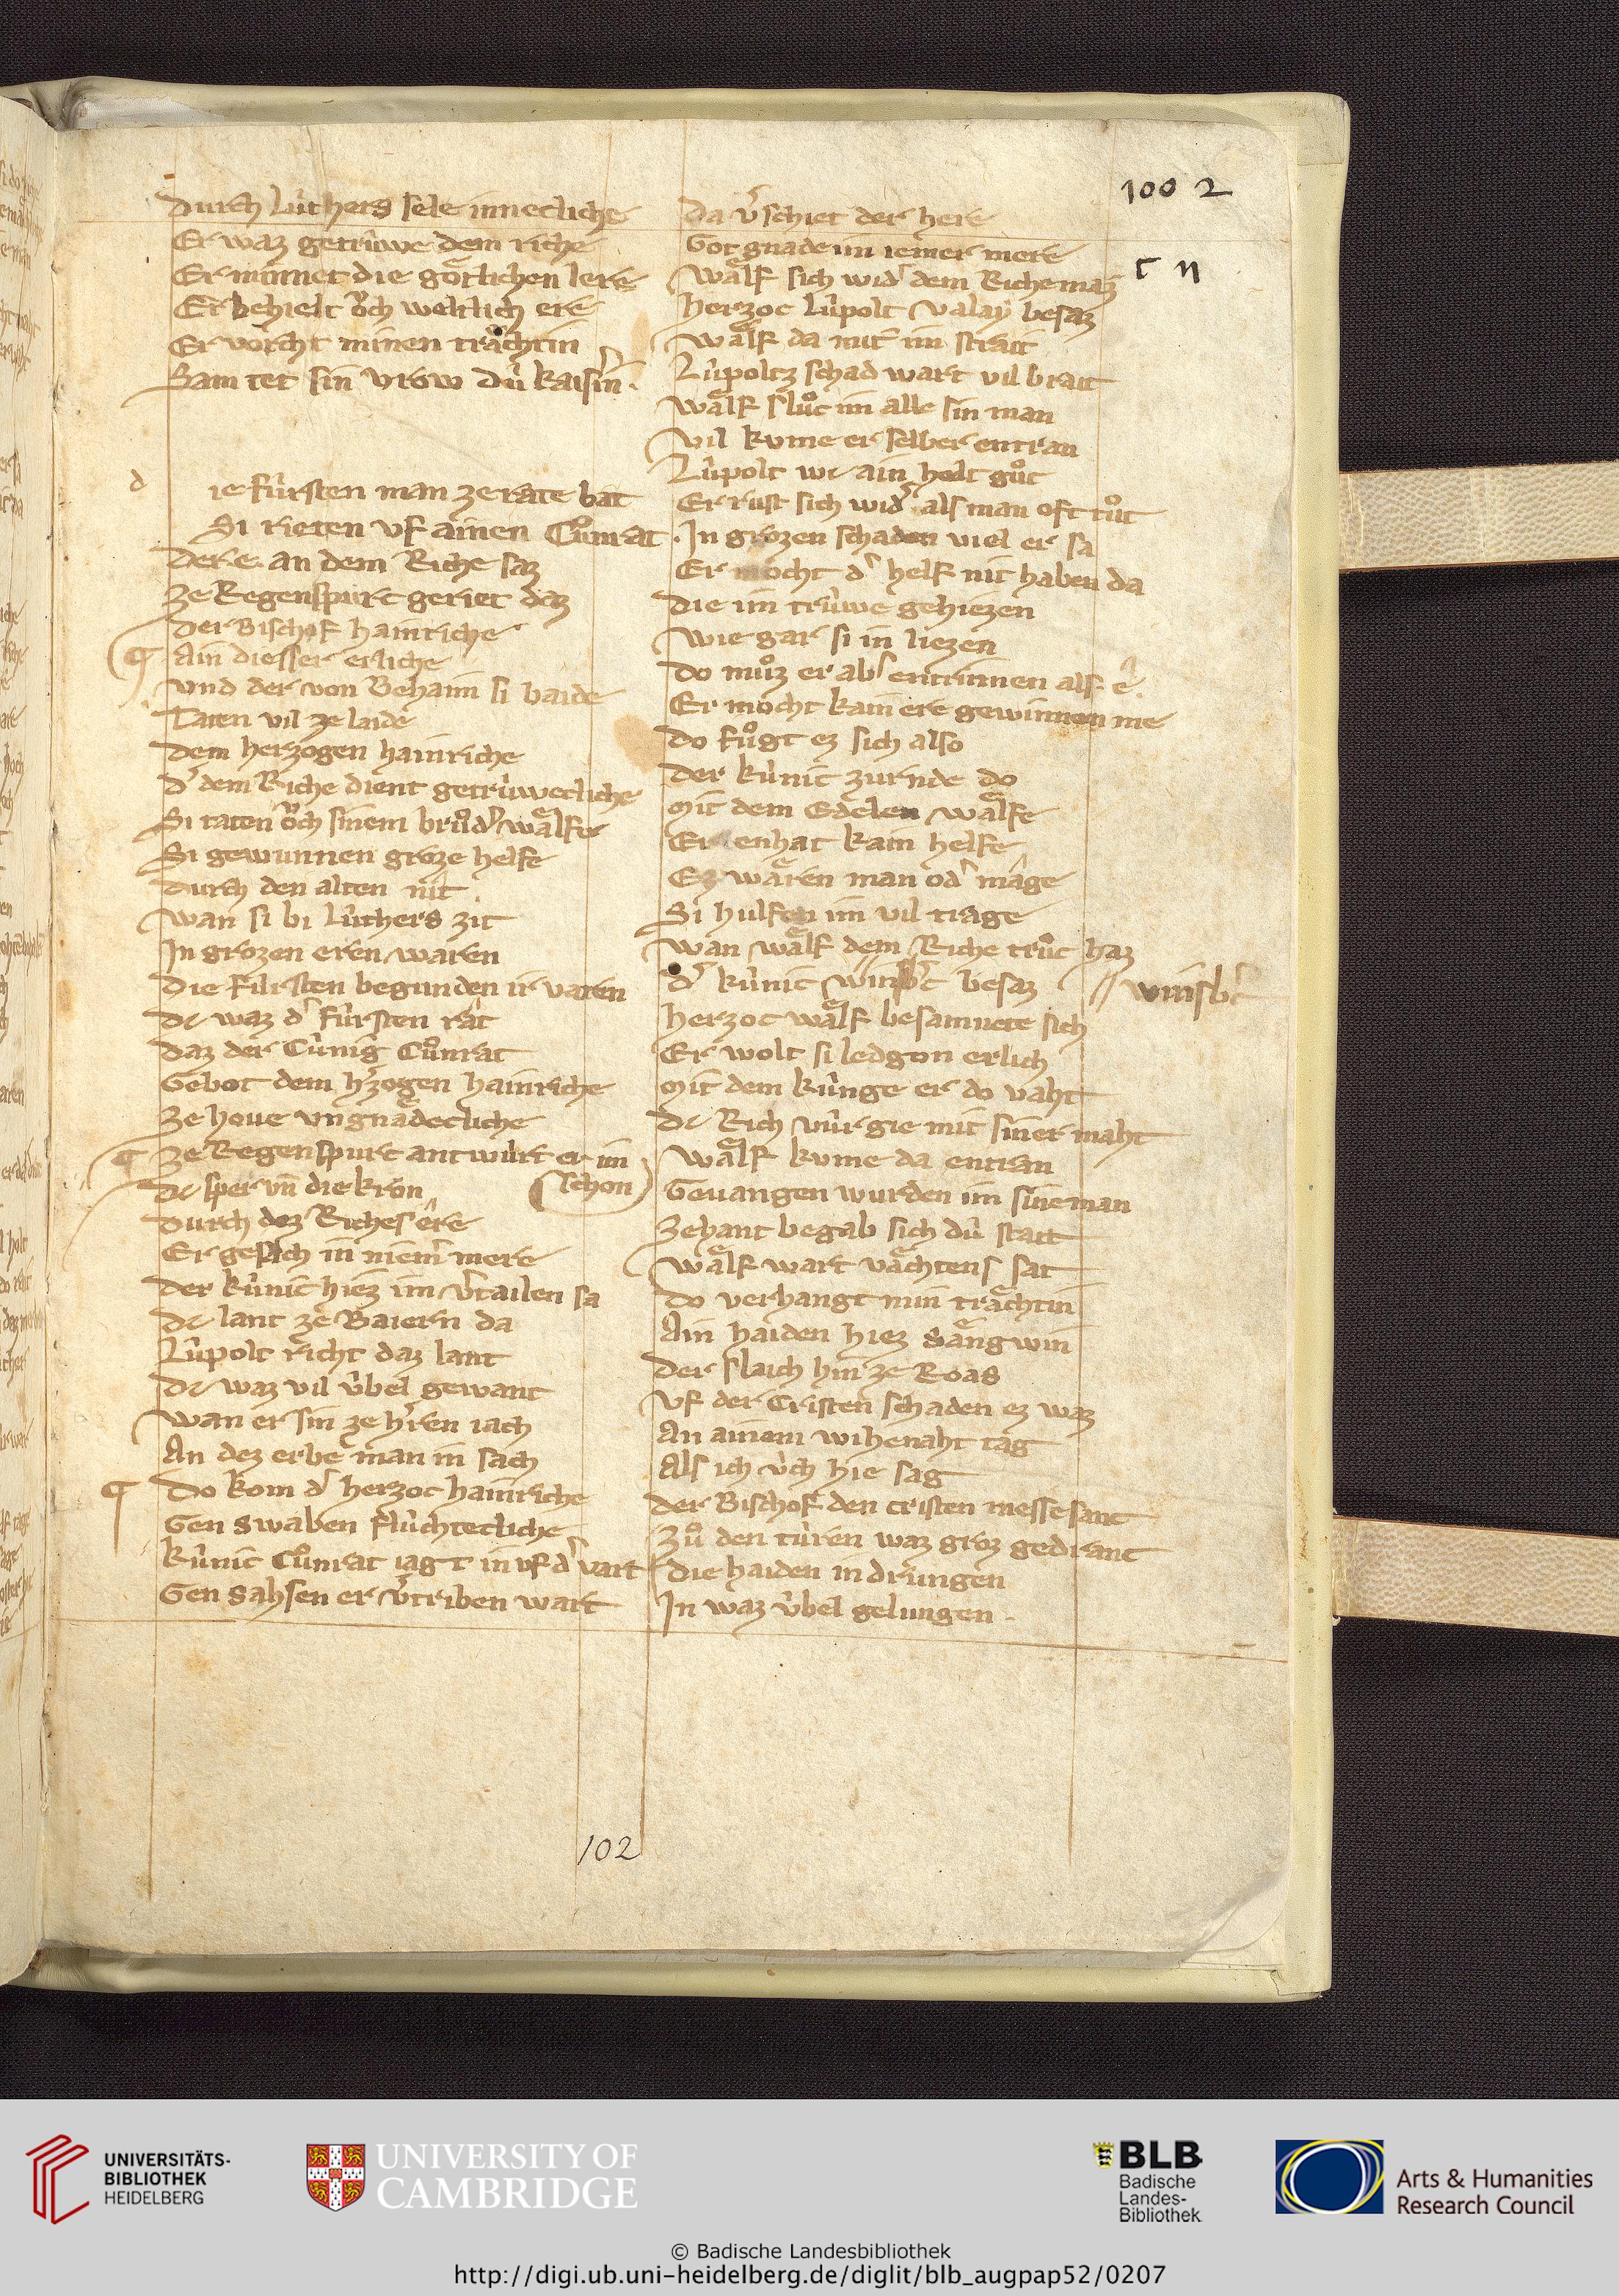 100 2
c n
Durch Luͤthers sele innecliche
Er waz getruͤwe dem riche
Er minnet die goͤtlichen lere
Er behielt oͮch weltlich ere
Er vorcht minen traͤchtin
Sam tet sin vrow duͤ kaisͥin.
d ie fuͤrsten man ze rate bat
Si rieten vf ainen Cuͦnrat
Der e an dem Riche saz
Ze Regenspurc geriet daz
Der Bischof hainriche
¶ Ain diesser erliche
Vnd der von Behaim si baide
Taten vil ze laide
Dem herzogen hainriche
dͥ dem Riche dient getruͤwecliche
Si taten oͮch sinem bruͦdͥ waͤlfe
Si gewunnen groze helfe
Durch den alten nit
Wan si bi Luͤthers zit
In grozen eren waren
Die fuͤrsten begunden ir varen
dc waz dͥ fuͤrsten rat
Daz der Cuͤnig Cuͦnrat
Gebot dem hͥzogen hainriche
Ze houe vngnaͤdecliche
¶ Ze Regenspurc antwuͤrt er im
dc sper vn̄ die kron schon
Durch dez Riches ere
Er gesach in niemͥ mere
Der kuͤnic hiez im vͥtailen sa
dc lant ze Baiern da
Luͤpolt richt daz lant
dc waz vil uͤbel gewant
Wan er sin ze hͥren iach
An dez erbe man in sach
¶ Do kom dͥ herzoc hainriche
Gen Swaben fluͤchtecliche
Kuͤnic Cuͦnrat iagt in vf dͥ vart
Gen Sahsen er vͥtriben wart
Da vͥschiet der here
Got gnade im iemer mere
Waͤlf sich widͥ dem Riche maz
Herzoc Luͤpolt Valay besaz
Waͤlf da mit im strait
Luͤpoltz schad wart vil brait
Waͤlf sluͦc im alle sin man
Vil kvme er selber entran
Luͤpolt wc ain helt guͦt
Er rust sich widͥ als man oft tuͦt
In grozen schaden viel er sa
Er mocht dͥ helf nit haben da
Die im truͤwe gehiezen
Wie gar si in liezen
Do muͦz er abͥ entrinnen als e.
Er mocht kain ere gewinnen me
Do fuͦgt ez sich also
Der kuͤnic zurnde do
Mit dem Edelen waͤlfe
Er enhat kain helfe
Ez waͤren man odͥ mage
Si hulfen im vil trage
Wan waͤlf dem Riche truͦc haz
dͥ kuͤnic winsbͥc besaz // winsbͥc
Herzoc waͤlf besamnete sich
Er wolt si ledgon erlich
Mit dem kuͤnge er do vaht
dc Rich vuͤr gie mit siner maht
Waͤlf kvme da entran
Geuangen wurden im sine man
Zehant begab sich duͤ statt
Waͤlf wart vaͤchtens sat
Do verhangt min traͤchtin
Ain haiden hiez Saͤngwin
Der slaich hin ze Roas
Vf der Cristen schaden ez waz
An ainem wihenaht tag
Als ich uͤch hie sag
Der Bischof den cristen messe sanc
Zuͦ den tuͤren waz groz gedranc
Die haiden in drungen
In waz uͤbel gelungen.
102
UNIVERSITÄTS-
BIBLIOTHEK
HEIDELBERG
UNIVERSITY OF
CAMBRIDGE
BLB
Badische
Landes-
Bibliothek
Arts & Humanities
Research Council
© Badische Landesbibliothek
http://digi.ub.uni-heidelberg.de/diglit/blb_augpap52/0207